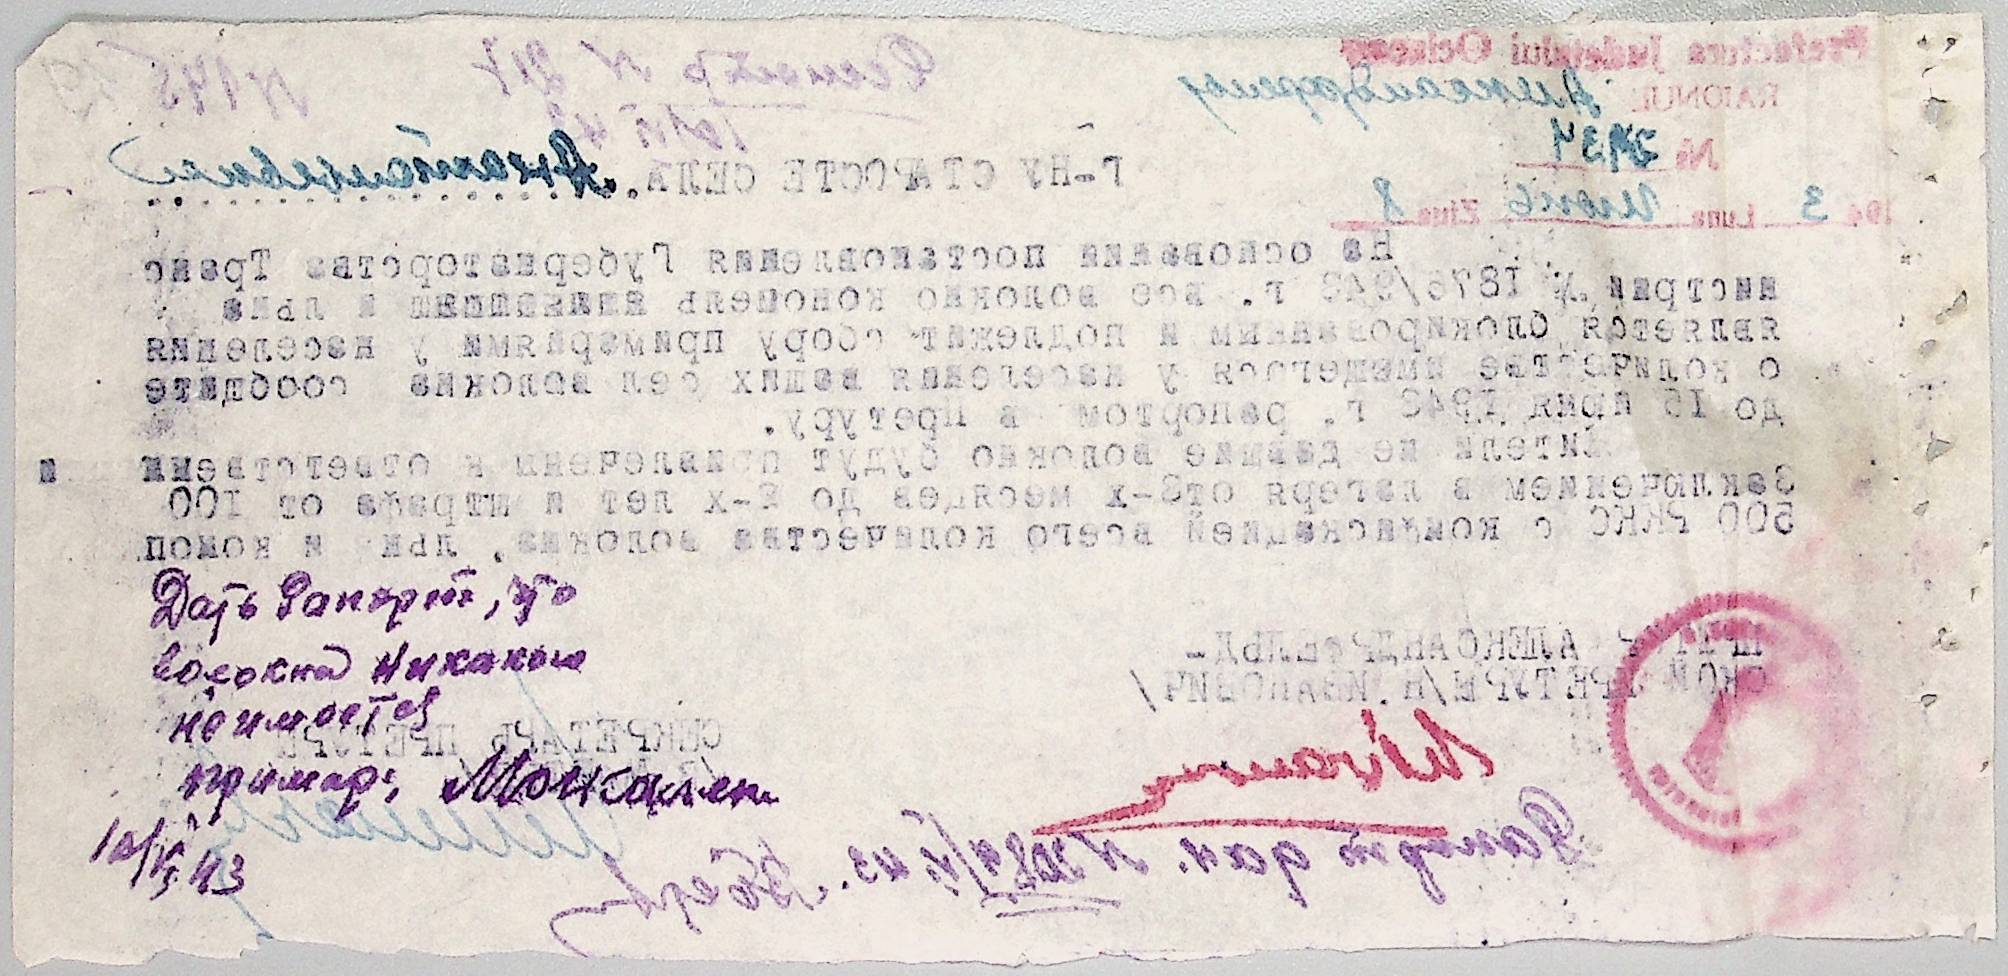 Prefectura Judetului Oceacov
RAIONUL Александрфельд
№ 2934
1943 Luna Июнь Ziua 8
N 145
10/VI 43
Г-НУ СТАРОСТЕ СЕЛА Анатольевка
На основании постановления Губернаторства Транс
нистрии № 1876/943 г. все волокно конопель и льна
является блокированным и подлежит сбору примариями у населения
о количестве имещегося у населения ваших сел волокна сообщите
до 15 1943 г. рапортом в Претуру.
Жители не давшие волокно будут привлечены к ответствени и
Заключением в лагеря от 3-х месяцев до 2-х лет и штрафа от 100
500 РККС с конфискацией всего количества волокна. льн и коноп
ПРЕТОР АЛЕКСАНДРФЕЛЬД-
СКОЙ ПРЕТУРЫ /Н.ИВАНОВИЧ/
СЕКРЕТАРЬ ПРЕТУРЫ
Дать Рапорт, что
волокна никакого
не имеется
Примарь
10/VI 43
Рапорт дан. N